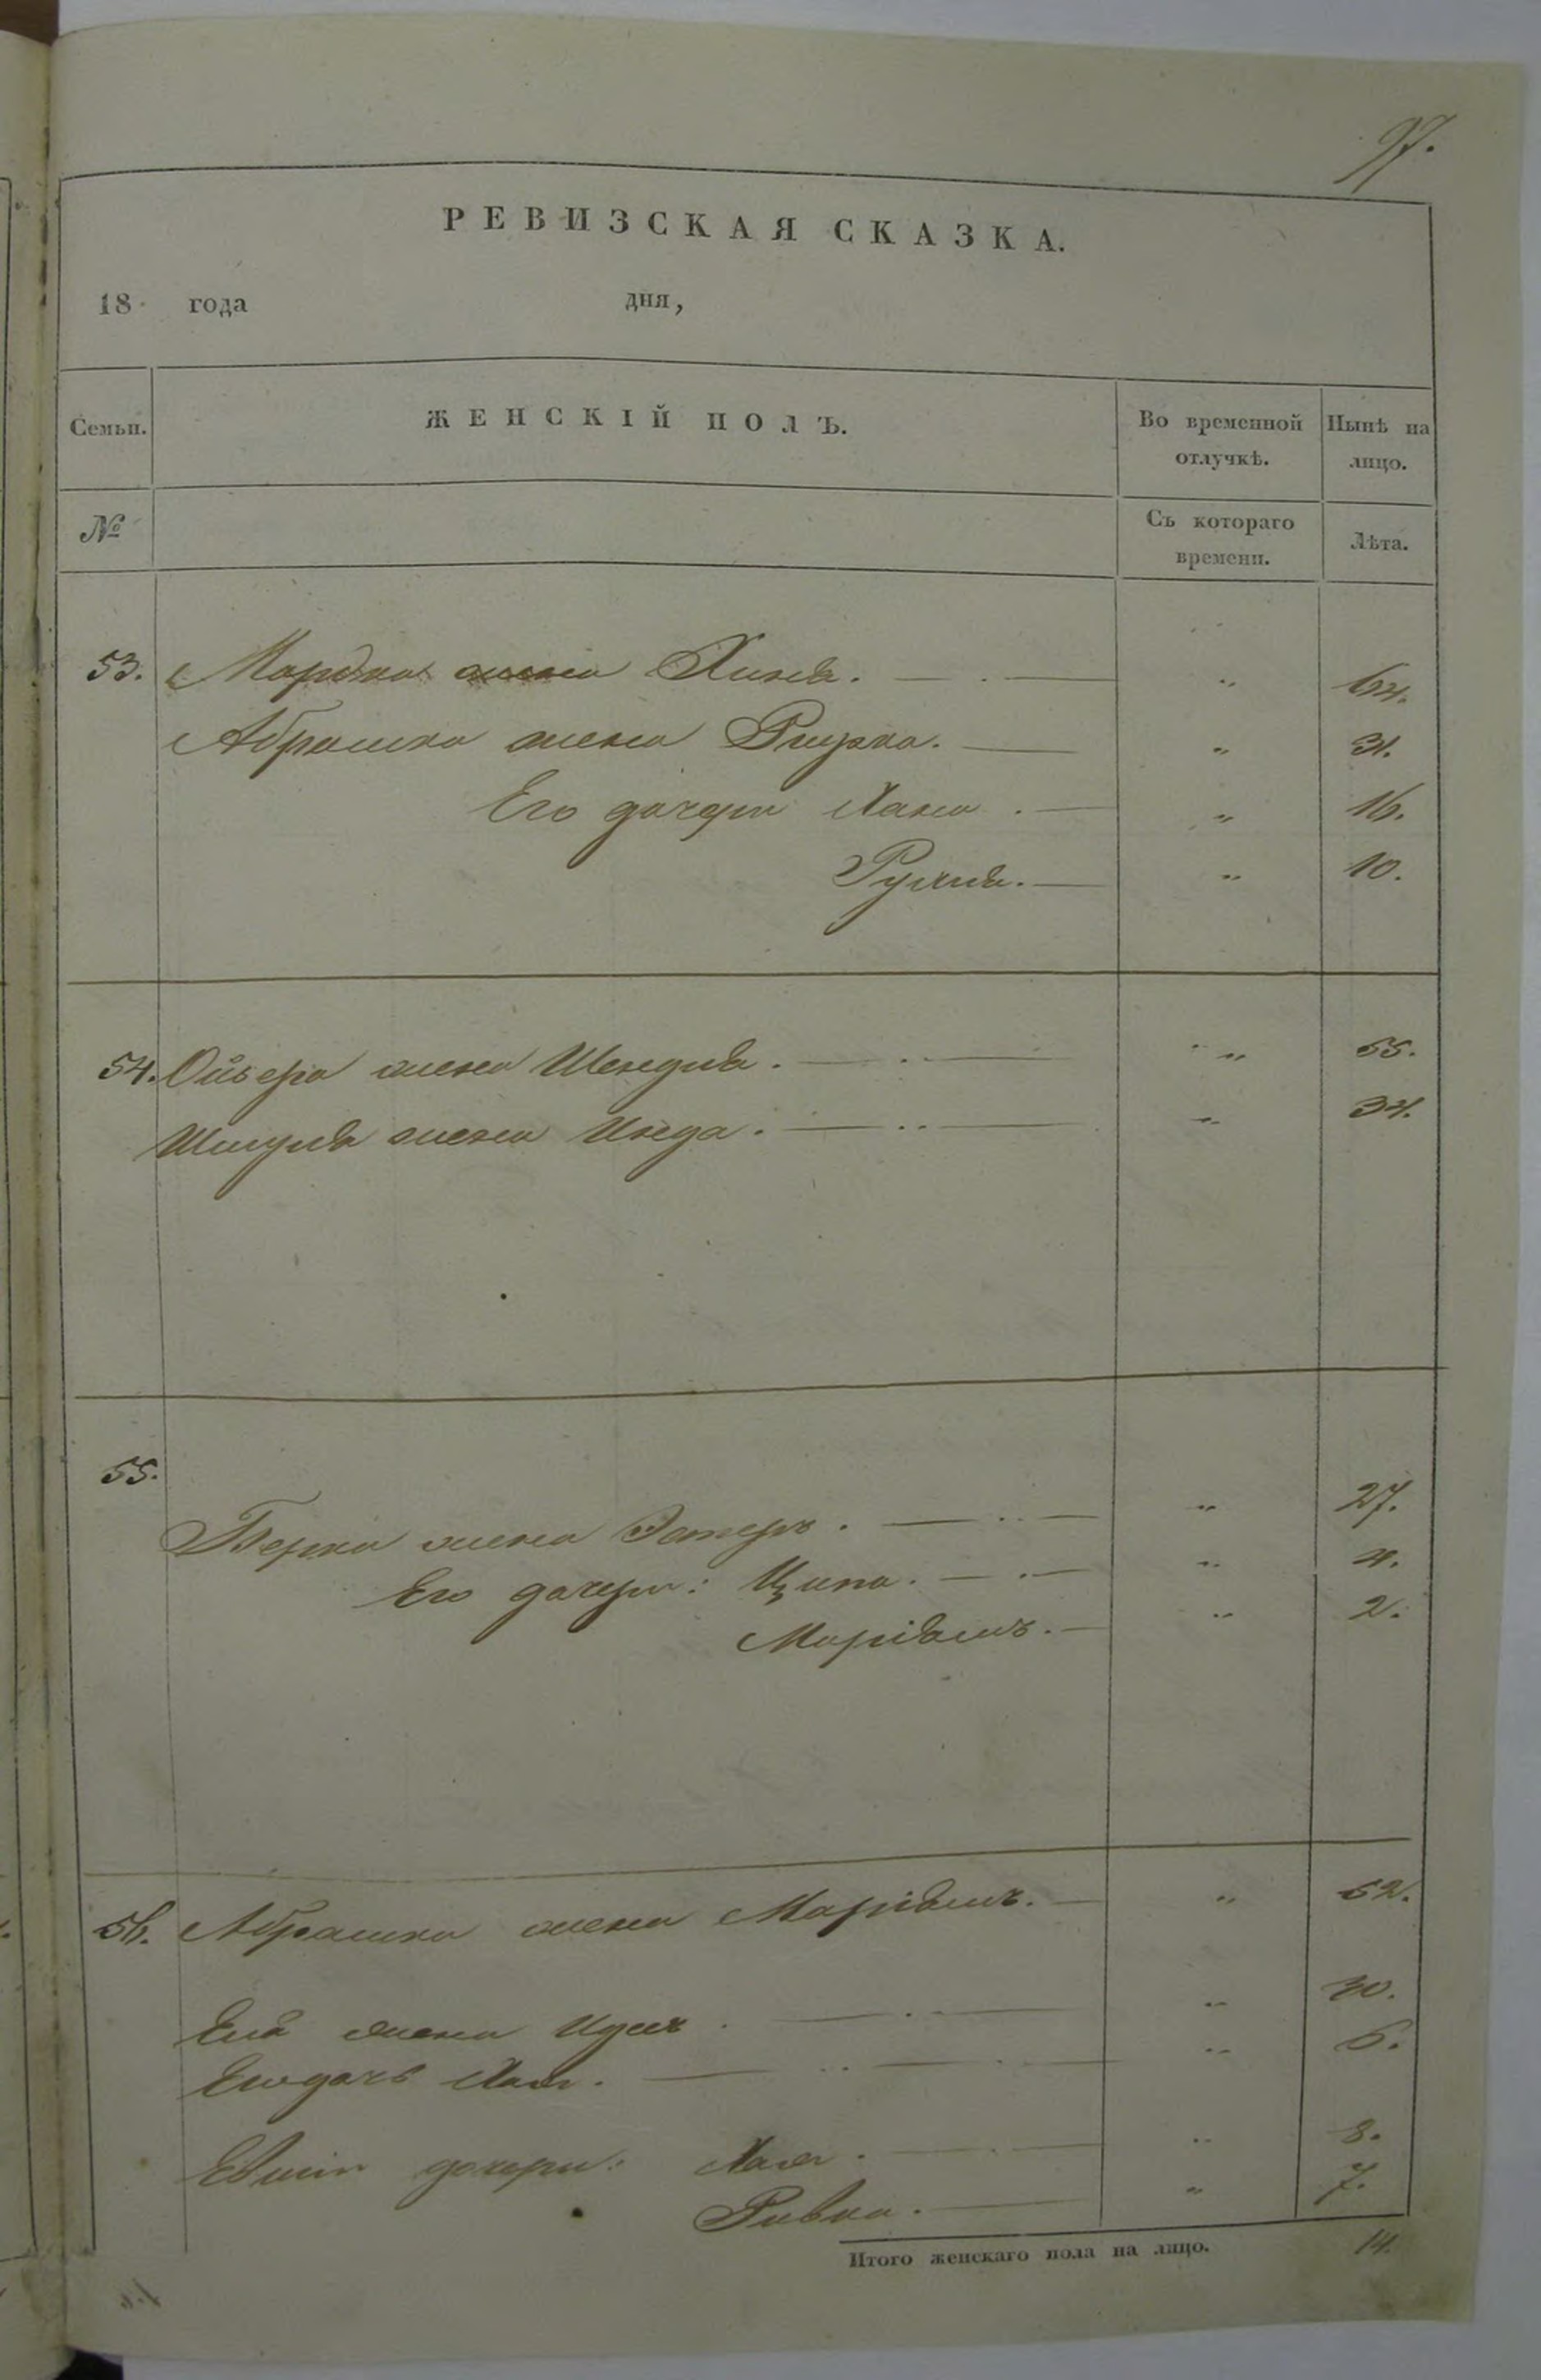 97.
РЕВИЗСКАЯ СКАЗКА.
18 года дня,
Семьи. ЖЕНСКІЙ ПОЛЪ. Во временной отлучкѣ. Нынѣ на лицо.
№ Съ котораго времени. Лѣта.
53. Мордка жена Хина. — . — „ 64.
Абрашка жена Ривка. — „ 31.
Его дочери Хана . — „ 16.
10.
54. жена Шендля. — .. — „ 55.
Шмуля жена Инда. — .. — „ 34.
55.
Берка жена Эстеръ. — .. — „ 27.
Его дочери: Ципа. — . — „ 4.
Маріямъ. — „ 2.
56. Абрашка жена Маріямъ. — „ 52.
жена — . — „ 30.
Его дочь Хая. — .. — . — „ 6.
дочери: Хая. — . — „ 8.
Ривка. — „ 7.
Итого женскаго пола на лицо. 14.